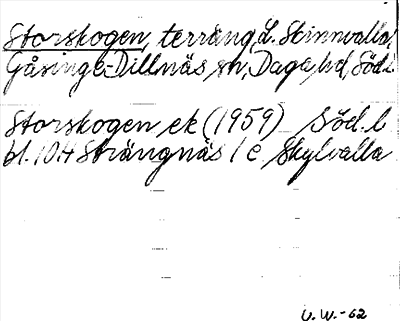 Storskogen, terräng, L. Skinnvalla,
Gåsinge-Dillnäs sn, Daga hd, Söd.l.
Storskogen ek (1959) Söd. l
bl. 10.4 Strängnäs / c Skylvalla
U.W.-62